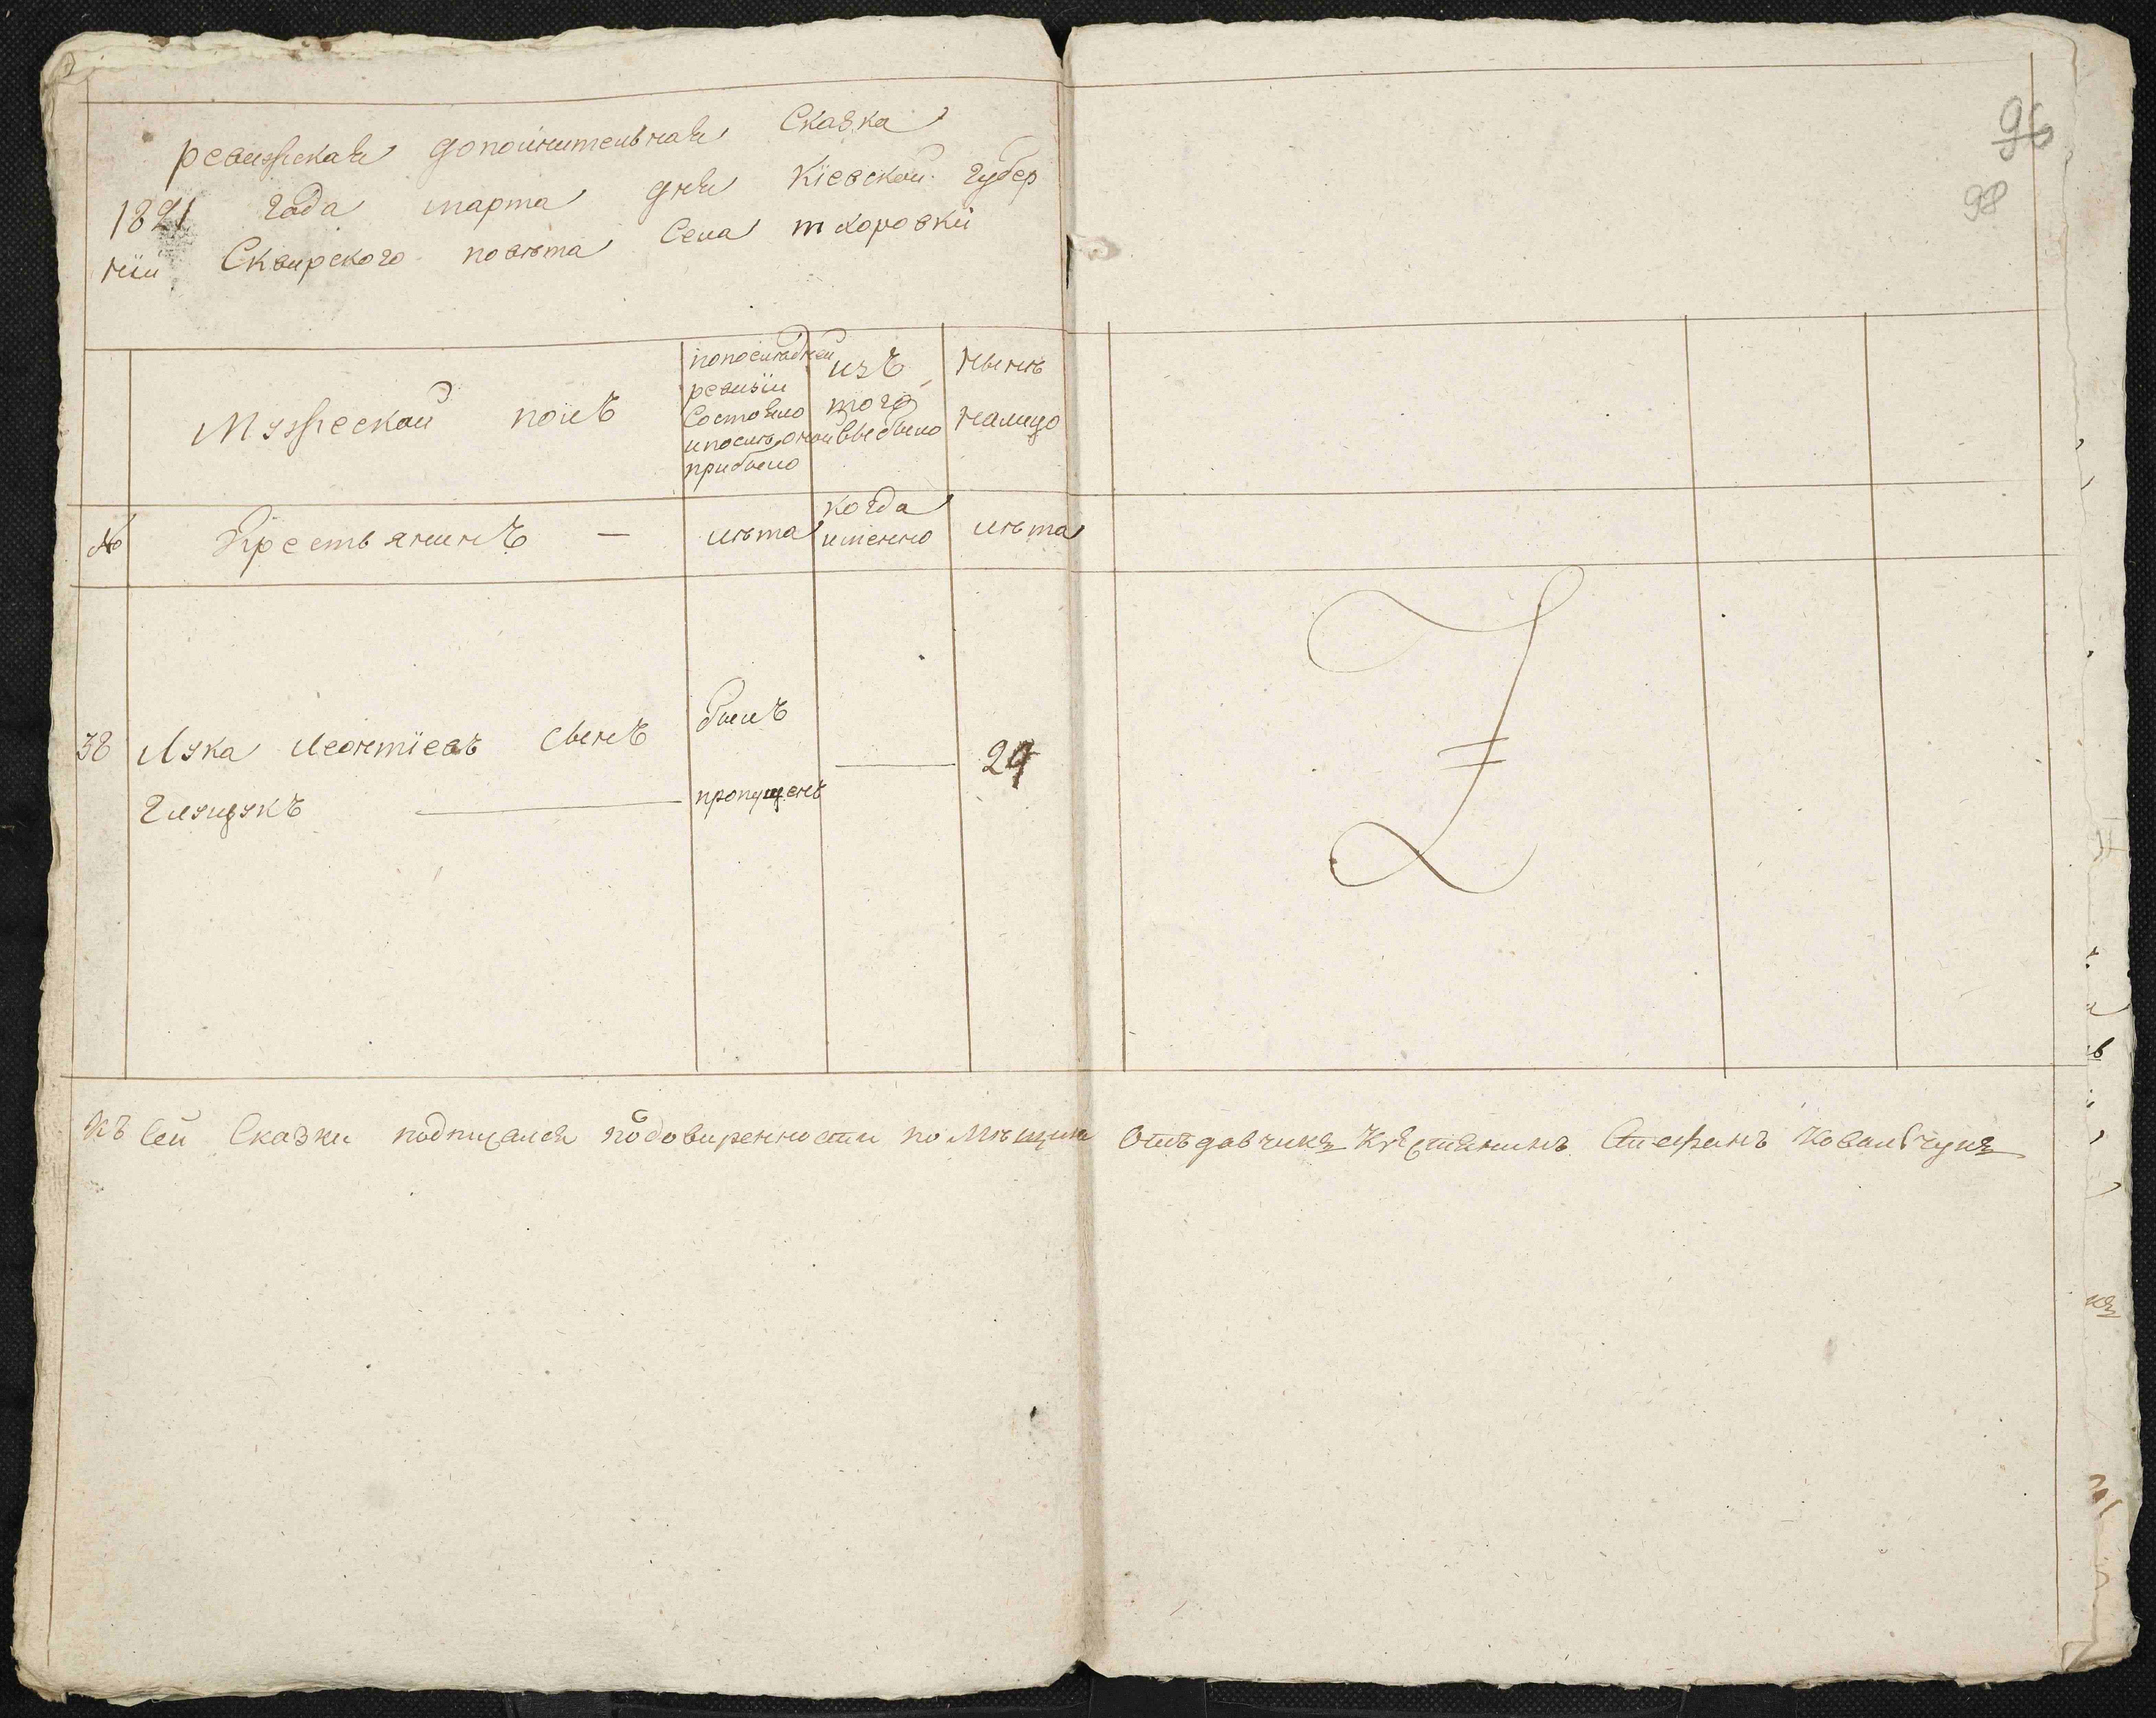 ревизская дополнительная Сказка
1821 года марта дня Кіевской губер
ніи Сквирского повѣта Села тхоровки
96
98
Мужеской полъ
попослѣдней
ревизіи
Состояло
ипослѣ оной
прибыло
изъ
того
выбыло
нынѣ
налицо
№
Крестьянинъ —
лѣта
когда
именно
лѣта
38
Лука Леонтіевъ сынъ
Глущукъ
былъ
пропущенъ
29
Къ Сей Сказки подписался подовиренности помѣщика Отъдавчика Крестянинъ Стефанъ Ковальчукъ